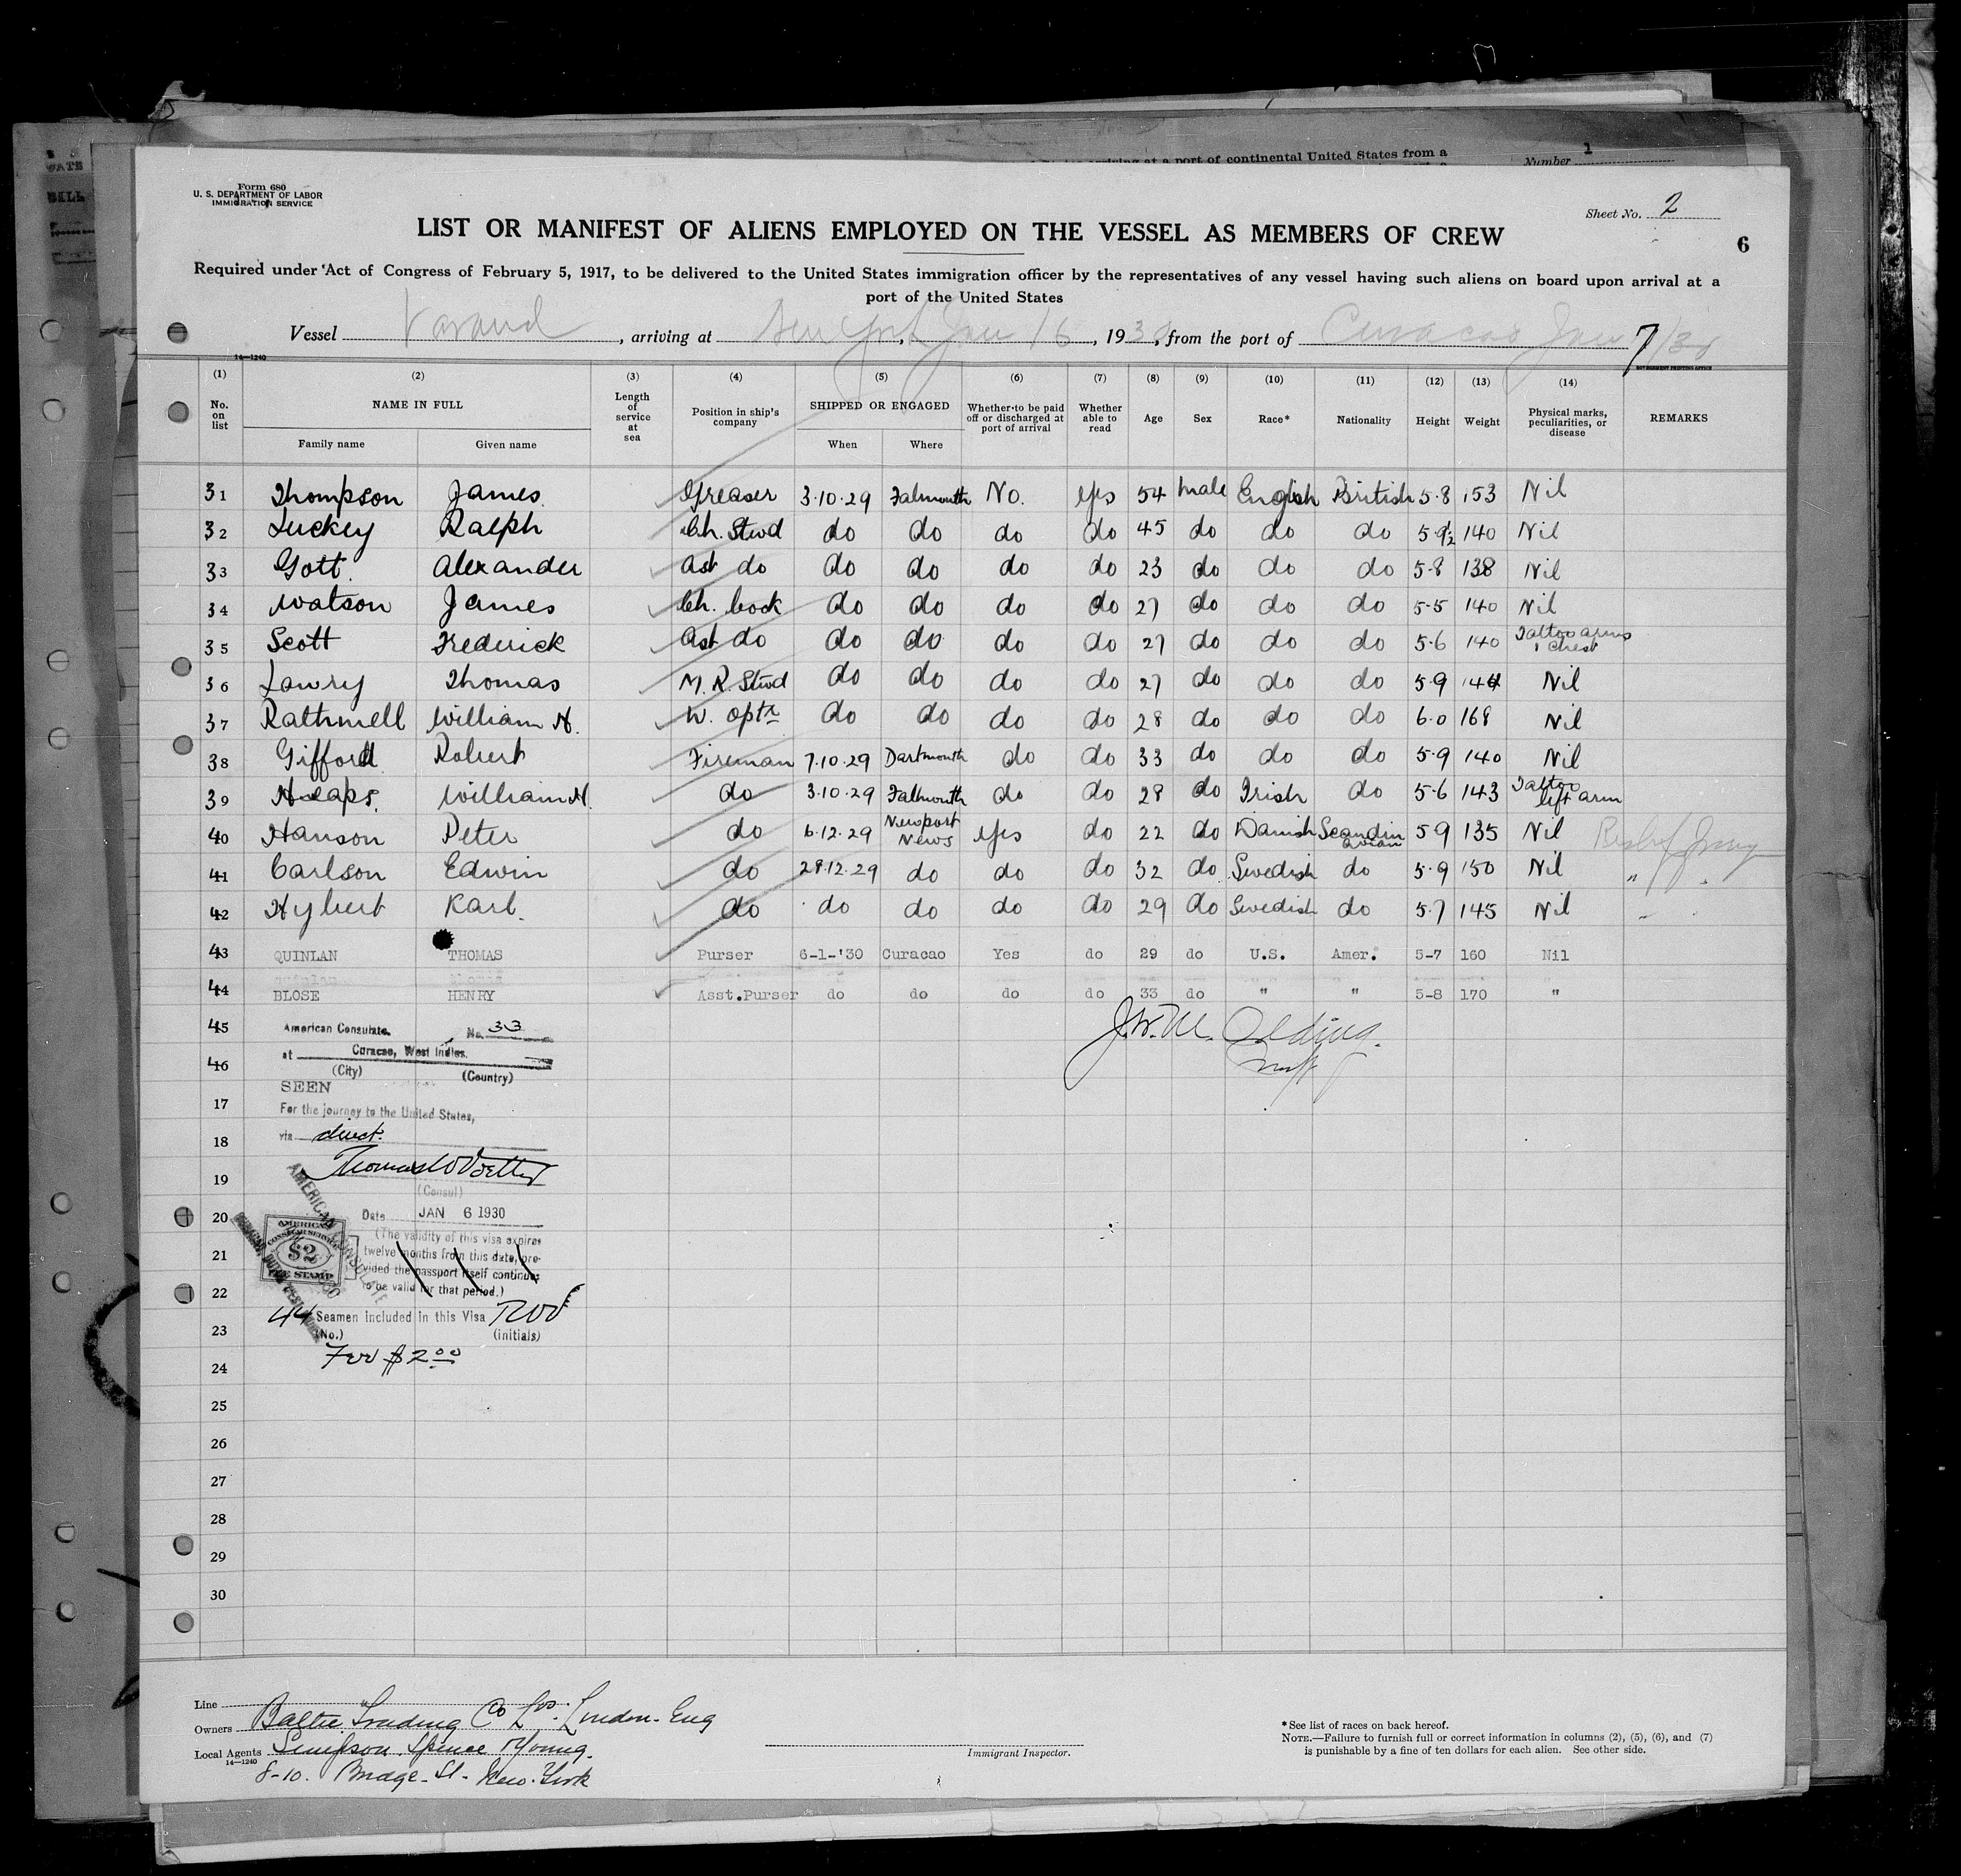 WATE
BILL
arriving at a port of continental United States from a
Number 1
Form 680
U. S. DEPARTMENT OF LABOR
IMMIGRATION SERVICE
Sheet No. 2
LIST OR MANIFEST OF ALIENS EMPLOYED ON THE VESSEL AS MEMBERS OF CREW
6
Required under Act of Congress of February 5, 1917, to be delivered to the United States immigration officer by the representatives of any vessel having such aliens on board upon arrival at a
port of the United States
Vessel , arriving at New York, Jan 16, 1930, from the port of Curacao Jan 7/30
14—1240
GOVERNMENT PRINTING OFFICE
(1) (2) (3) (4) (5) (6) (7) (8) (9) (10) (11) (12) (13) (14)
No. on list NAME IN FULL Length of service at sea Position in ship's company SHIPPED OR ENGAGED Whether to be paid off or discharged at port of arrival Whether able to read Age Sex Race* Nationality Height Weight Physical marks, peculiarities, or disease REMARKS
Family name Given name When Where
31 Thompson James Greaser 3.10.29 Falmouth No. Yes 54 Male English British 5.8 153 Nil
32 Luckey Ralph Ch. Stwd do do do do 45 do do do 5.9½ 140 Nil
33 Gott. Alexander Ast do do do do do 23 do do do 5.8 138 Nil
34 Watson James Ch. Cook do do do do 27 do do do 5.5 140 Nil
35 Scott Frederick Ast do do do do do 27 do do do 5.6 140 Tattoo arms & Chest
36 Lowry Thomas M.R. Stwd do do do do 27 do do do 5.9 144 Nil
37 Rathmell William H. W. Optr do do do do 28 do do do 6.0 168 Nil
38 Gifford Robert Fireman 7.10.29 Dartmouth do do 33 do do do 5.9 140 Nil
39 Heaps. William H. do 3.10.29 Falmouth do do 28 do Irish do 5.6 143 Tattoo left arm
40 Hanson Peter do 6.12.29 Newport News Yes do 22 do Danish Scandinavian 5.9 135 Nil
41 Carlson Edwin do 28.12.29 do do do 32 do Swedish do 5.9 150 Nil "
42 Hybert Karl. do do do do do 29 do Swedish do 5.7 145 Nil "
43 QUINLAN THOMAS Purser 6-1-'30 Curacao Yes do 29 do U.S. Amer. 5-7 160 Nil
44 BLOSE HENRY Asst.Purser do do do do 33 do " " 5-8 170 "
45 American Consulate. No. 33
J.W.M. Olding.
at Curacao, West Indies.
46 (City) (Country)
SEEN
17 For the journey to the United States,
18 via direct.
19 (Consul)
20 Date JAN 6 1930
AMERICAN CONSULATE
AMERICAN CONSULAR SERVICE $2 FEE STAMP
(The validity of this visa expires
21 twelve months from this date, pro-
vided the passport itself continues
22 to be valid for that period.)
44 Seamen included in this Visa
23 (No.) (initials)
Fee $2.00
24
25
26
27
28
29
30
Line
Owners Baltic Trading Co Ltd. London. Eng
Local Agents Simpson Spence Young.
14—1240
8-10. Bridge. St. New. York
Immigrant Inspector.
*See list of races on back hereof.
NOTE.—Failure to furnish full or correct information in columns (2), (5), (6), and (7)
is punishable by a fine of ten dollars for each alien. See other side.